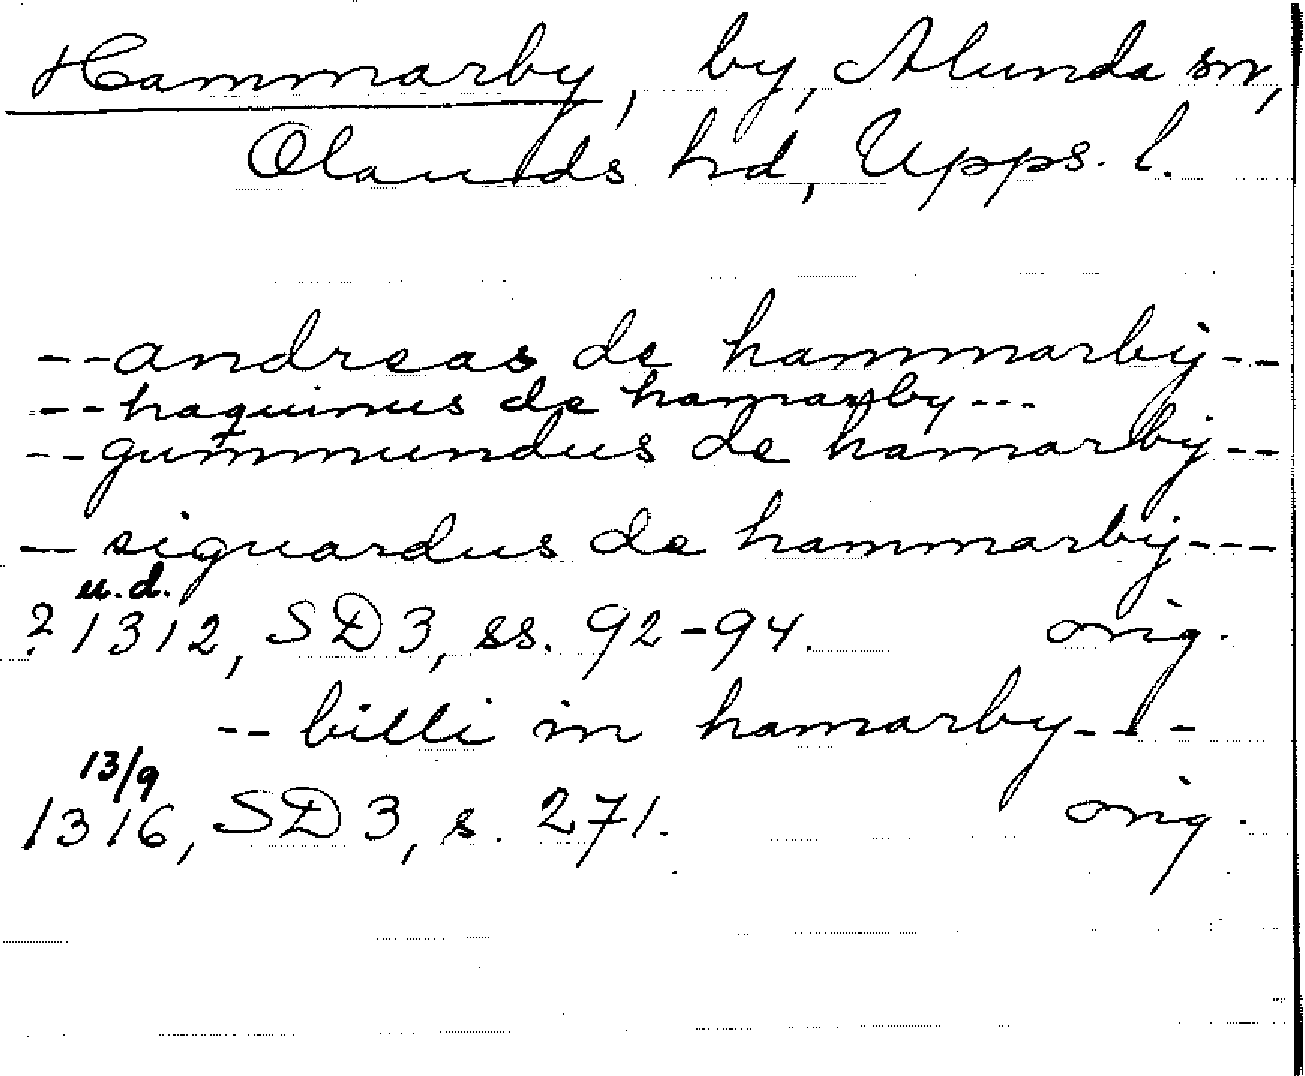 Hammarby, by, Alunda sn,
Olands hd, Upps. l.
--andreas de hammarby--
--haquinus de hamarby---
--gummundus de hamarby--
— siguardus de hammarby---
u.d.
? 1312, SD 3, ss. 92-94. orig.
--billi in hamarby---
13/9
1316, SD 3, s. 271. orig.